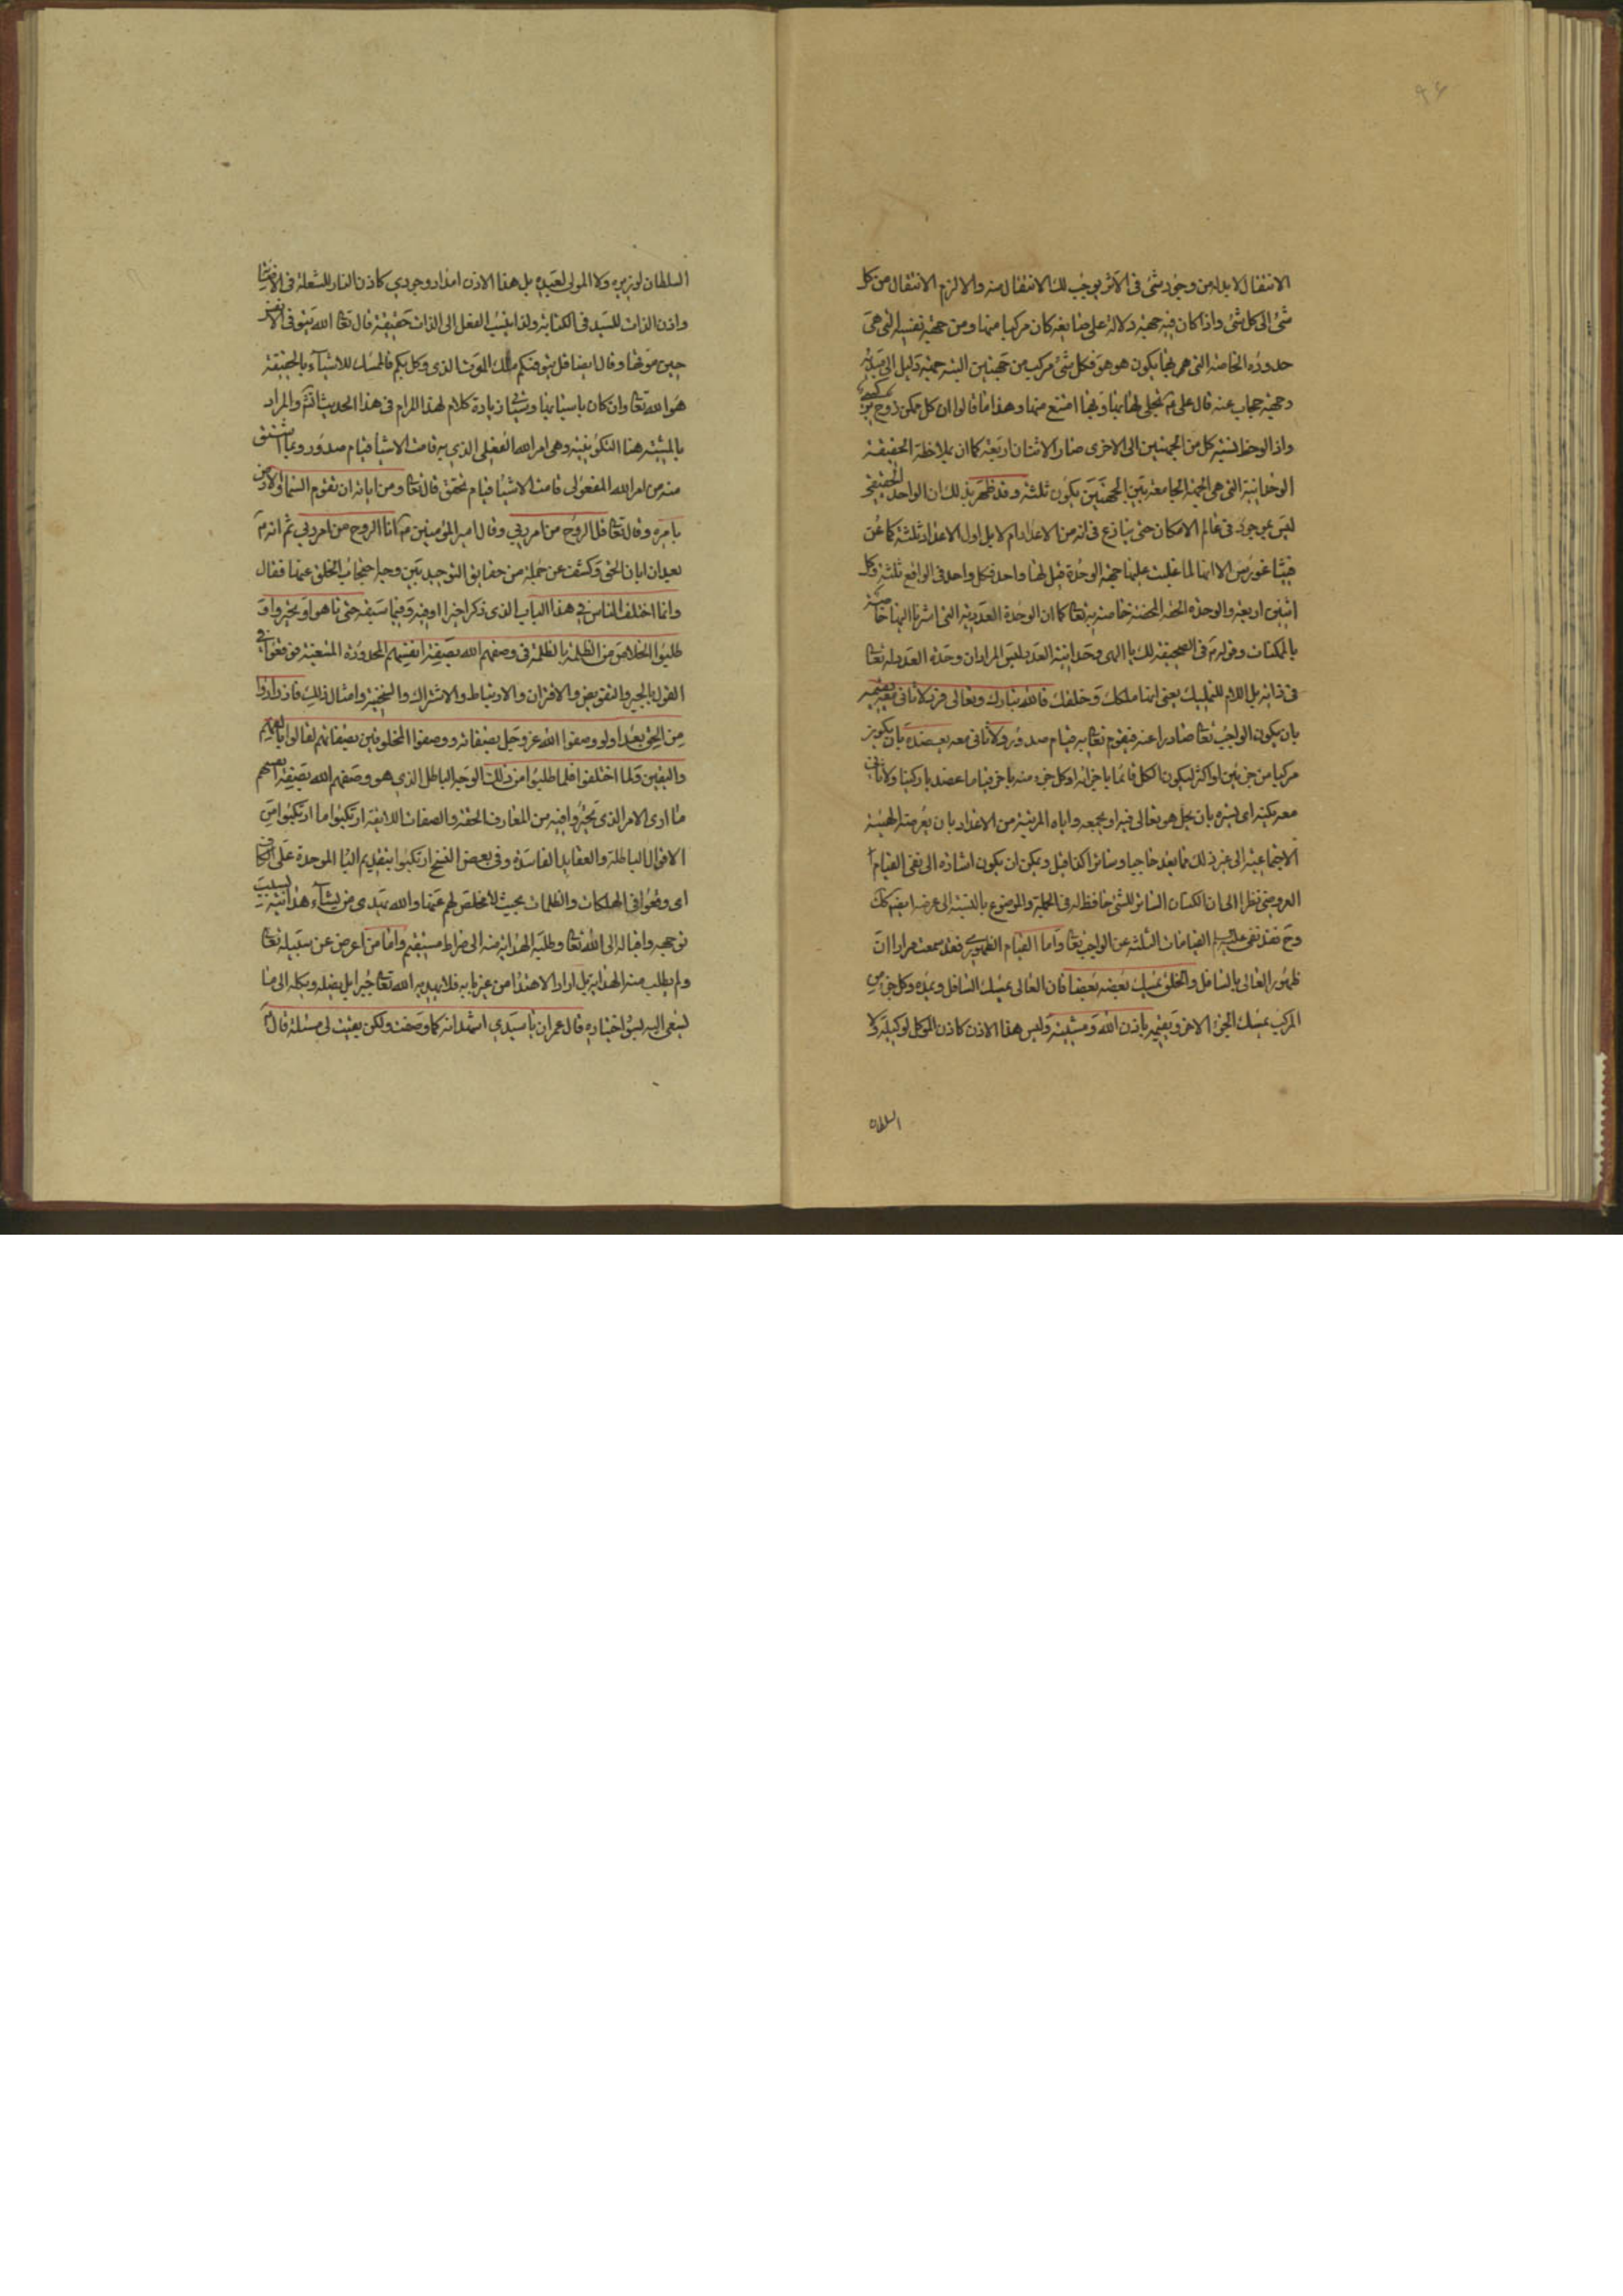 الانتقال لا بد له من وجود شئ فى الأثر يوجب لك الانتقال منه والا لزم الانتقال من كل
شئ الى كل شئ واذا كان فيه جهة دلالة على صانعه كان مركبا منها ومن جهة نفسه التى هى
حدوده الخاصة التى هو بها يكون هو هو فكل شئ مركب من جهتين البتة جهة دليل الى
وجهة حجاب عنه قال على تجلى لها بها وبها امتنع منها وهذا ما قالوا ان كل ممكن زوج تركيبى
واذا لوحظ نسبة كل من الجهتين الى الاخرى صار الاثنان اربعة كما ان بملاحظة الحقيقة
الوحدانية التى هى الجهة الجامعة بين الجهتين يكون ثلثة وقد ظهر بذلك ان الواحد الحقيقى
ليس بموجود فى عالم الامكان حتى ينازع فى انه من الاعداد ام لا بل اول الاعداد ثلثة كما عن
فيثاغورس الا انها لما غلبت عليها جهة الوحدة قيل لها واحد فكل واحد فى الواقع ثلثة وكل
اثنين اربعة والوحدة الحقة المحضة خاصة به تعالى كما ان الوحدة العددية التى اشرنا اليها خاصة
بالممكنات وقوله فى الصحيفة لك يا الهى وحدانية العدد ليس المراد ان وحدة العدد له تعالى
فى ذاته بل اللام للتمليك يعنى انها ملكك وخلقك فالله تبارك وتعالى فرد لا ثانى معه يقيمه
بان يكون الواجب تعالى صادرا عنه فيقوم تعالى به قيام صدور ولا ثانى معه يعضده بان يكون
مركبا من جزئين او اكثر ليكون الكل قائما باجزائه او كل جزء منه باخر قياما عضديا ركنيا ولا ثانى
معه يكنه اى يستره بان يحل هو تعالى فيه او يجمعه واياه المرتبة من الاعداد بان يعرضه الهيئة
الاجتماعية الى غير ذلك مما يعد حاجبا وساترا كذا قيل ويمكن ان يكون اشارة الى نفى القيام
العروضى نظرا الى ان الكنان الساتر للشئ حافظ له فى الجملة والموضوع بالنسبة الى عرضه ايضا كك
وح فقد نفى عليه السلام القيامات الثلثة عن الواجب تعالى واما القيام الظهورى فقد سمعت مرارا ان
ظهور العالى بالسافل والخلق يمسك بعضه بعضا فان العالى يمسك السافل ويمده وكل جزء من
المركب يمسك الجزء الاخر ويقيمه باذن الله ومشيته وليس هذا الاذن كاذن الموكل لوكيله ولا
السلطان
السلطان لوزيره ولا المولى لعبده بل هذا الاذن امداد وجودى كاذن النار للشعلة فى الاضاءة
واذن الذات لليد فى الكتابة ولذا ينسب الفعل الى الذات حقيقة قال تعالى الله يتوفى الانفس
حين موتها وقال ايضا قل يتوفيكم ملك الموت الذى وكل بكم فالممسك للاشياء بالحقيقة
هو الله تعالى وان كان باسبابها وسياتى زيادة كلام لهذا المرام فى هذا الحديث انتم والمراد
بالمشية هنا التكوينية وهى امر الله الفعلى الذى به قامت الاشيا قيام صدور وبما اشتق
منه من امر الله المفعولى قامت الاشيا قيام تحقق قال تعالى ومن اياته ان تقوم السما والارض
بامره وقال تعالى قل الروح من امر ربى وقال امير المؤمنين انا الروح من امر ربى ثم انه
بعد ان ابان الحق وكشف عن جملة من حقايق التوحيد بين وجه احتجاب الخلق عنها فقال
وانما اختلف الناس فى هذا الباب الذى ذكر اخيرا او فيه وفيما سبقه حتى تاهوا وتحيروا و
طلبوا الخلاص من الظلمة بالظلمة فى وصفهم الله بصفة انفسهم المحدودة المتعينة فوقعوا فى
القول بالجبر والتفويض والاقتران والارتباط والاشتراك والسنخية وامثال ذلك فازدادوا
من الحق بعدا ولو وصفوا الله عز وجل بصفاته ووصفوا المخلوقين بصفاتهم لقالوا بالفهم
واليقين ولما اختلفوا فلما طلبوا من ذلك الوجه الباطل الذى هو وصفهم الله بصفة انفسهم
ما ادى الامر الذى تحيروا فيه من المعارف الحقة والصفات اللايقة ارتكبوا ما ارتكبوا من
الاقوال الباطلة والعقايد الفاسدة وفى بعض النسخ ارتكبوا بتقديم البا الموحدة على الكاف
اى وقعوا فى الهلكات والظلمات بحيث لا مخلص لهم عنها والله يهدى من يشاء هدايته بسبب
توجهه واقباله الى الله تعالى وطلبه الهداية منه الى صراط مستقيم واما من اعرض عن سبيله تعالى
ولم يطلب منه الهداية بل اراد الاهتدا من غير بابه فلا يهديه الله تعالى جبرا بل يضله ويكله الى ما
لسعى اليه لسوء اختياره قال عمران يا سيدى اشهد انه كما وصفت ولكن بقيت لى مسئلة قال